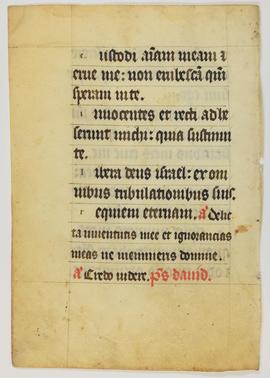 c ustodi aīam meam ⁊
erue me: non erubescā qm̄
speraui in te.
i nnocentes et recti adhe
serunt michi: quia sustinui
te.
l ibera deus israel: ex om
nibus tribulationibus suis.
r equiem eternam. a᷎ Delic
ta iuuentutis mee et ignorancias
meas ne memineris domine.
a᷎ Credo videre. ps dauid.